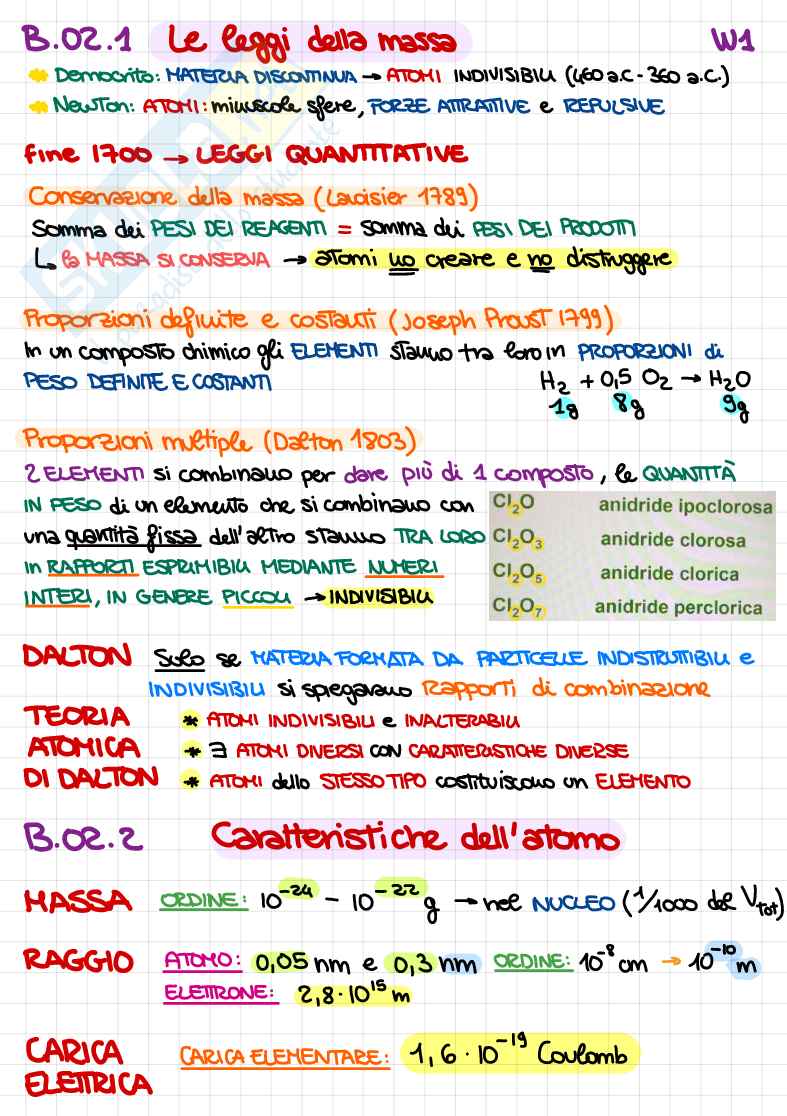 B.02.1 Le leggi della massa W1
* Democrito: MATERIA DISCONTINUA → ATOMI INDIVISIBILI (460 a.C - 360 a.C.)
* Newton: ATOMI: minuscole sfere, FORZE ATTRATTIVE e REPULSIVE
fine 1700 → LEGGI QUANTITATIVE
Conservazione della massa (Lavoisier 1789)
Somma dei PESI DEI REAGENTI = somma dei PESI DEI PRODOTTI
↳ la MASSA SI CONSERVA → atomi no creare e no distruggere
Proporzioni definite e costanti (Joseph Proust 1799)
In un composto chimico gli ELEMENTI stanno tra loro in PROPORZIONI di
PESO DEFINITE E COSTANTI H₂ + 0,5 O₂ → H₂O
1g 8g 9g
Proporzioni multiple (Dalton 1803)
2 ELEMENTI si combinano per dare più di 1 composto, le QUANTITÀ
IN PESO di un elemento che si combinano con
una quantità fissa dell'altro stanno TRA LORO
in RAPPORTI ESPRIMIBILI MEDIANTE NUMERI
INTERI, IN GENERE PICCOLI → INDIVISIBILI
Cl₂O anidride ipoclorosa
Cl₂O₃ anidride clorosa
Cl₂O₅ anidride clorica
Cl₂O₇ anidride perclorica
DALTON Solo se MATERIA FORMATA DA PARTICELLE INDISTRUTTIBILI e
INDIVISIBILI si spiegavano Rapporti di combinazione
TEORIA * ATOMI INDIVISIBILI e INALTERABILI
ATOMICA * ∃ ATOMI DIVERSI CON CARATTERISTICHE DIVERSE
DI DALTON * ATOMI dello STESSO TIPO costituiscono un ELEMENTO
B.02.2 Caratteristiche dell'atomo
MASSA ORDINE: 10⁻²⁴ - 10⁻²² g → nel NUCLEO (1/1000 del Vtot)
RAGGIO ATOMO: 0,05 nm e 0,3 nm ORDINE: 10⁻⁸ cm → 10⁻¹⁰ m
ELETTRONE: 2,8 · 10¹⁵ m
CARICA CARICA ELEMENTARE: 1,6 · 10⁻¹⁹ Coulomb
ELETTRICA